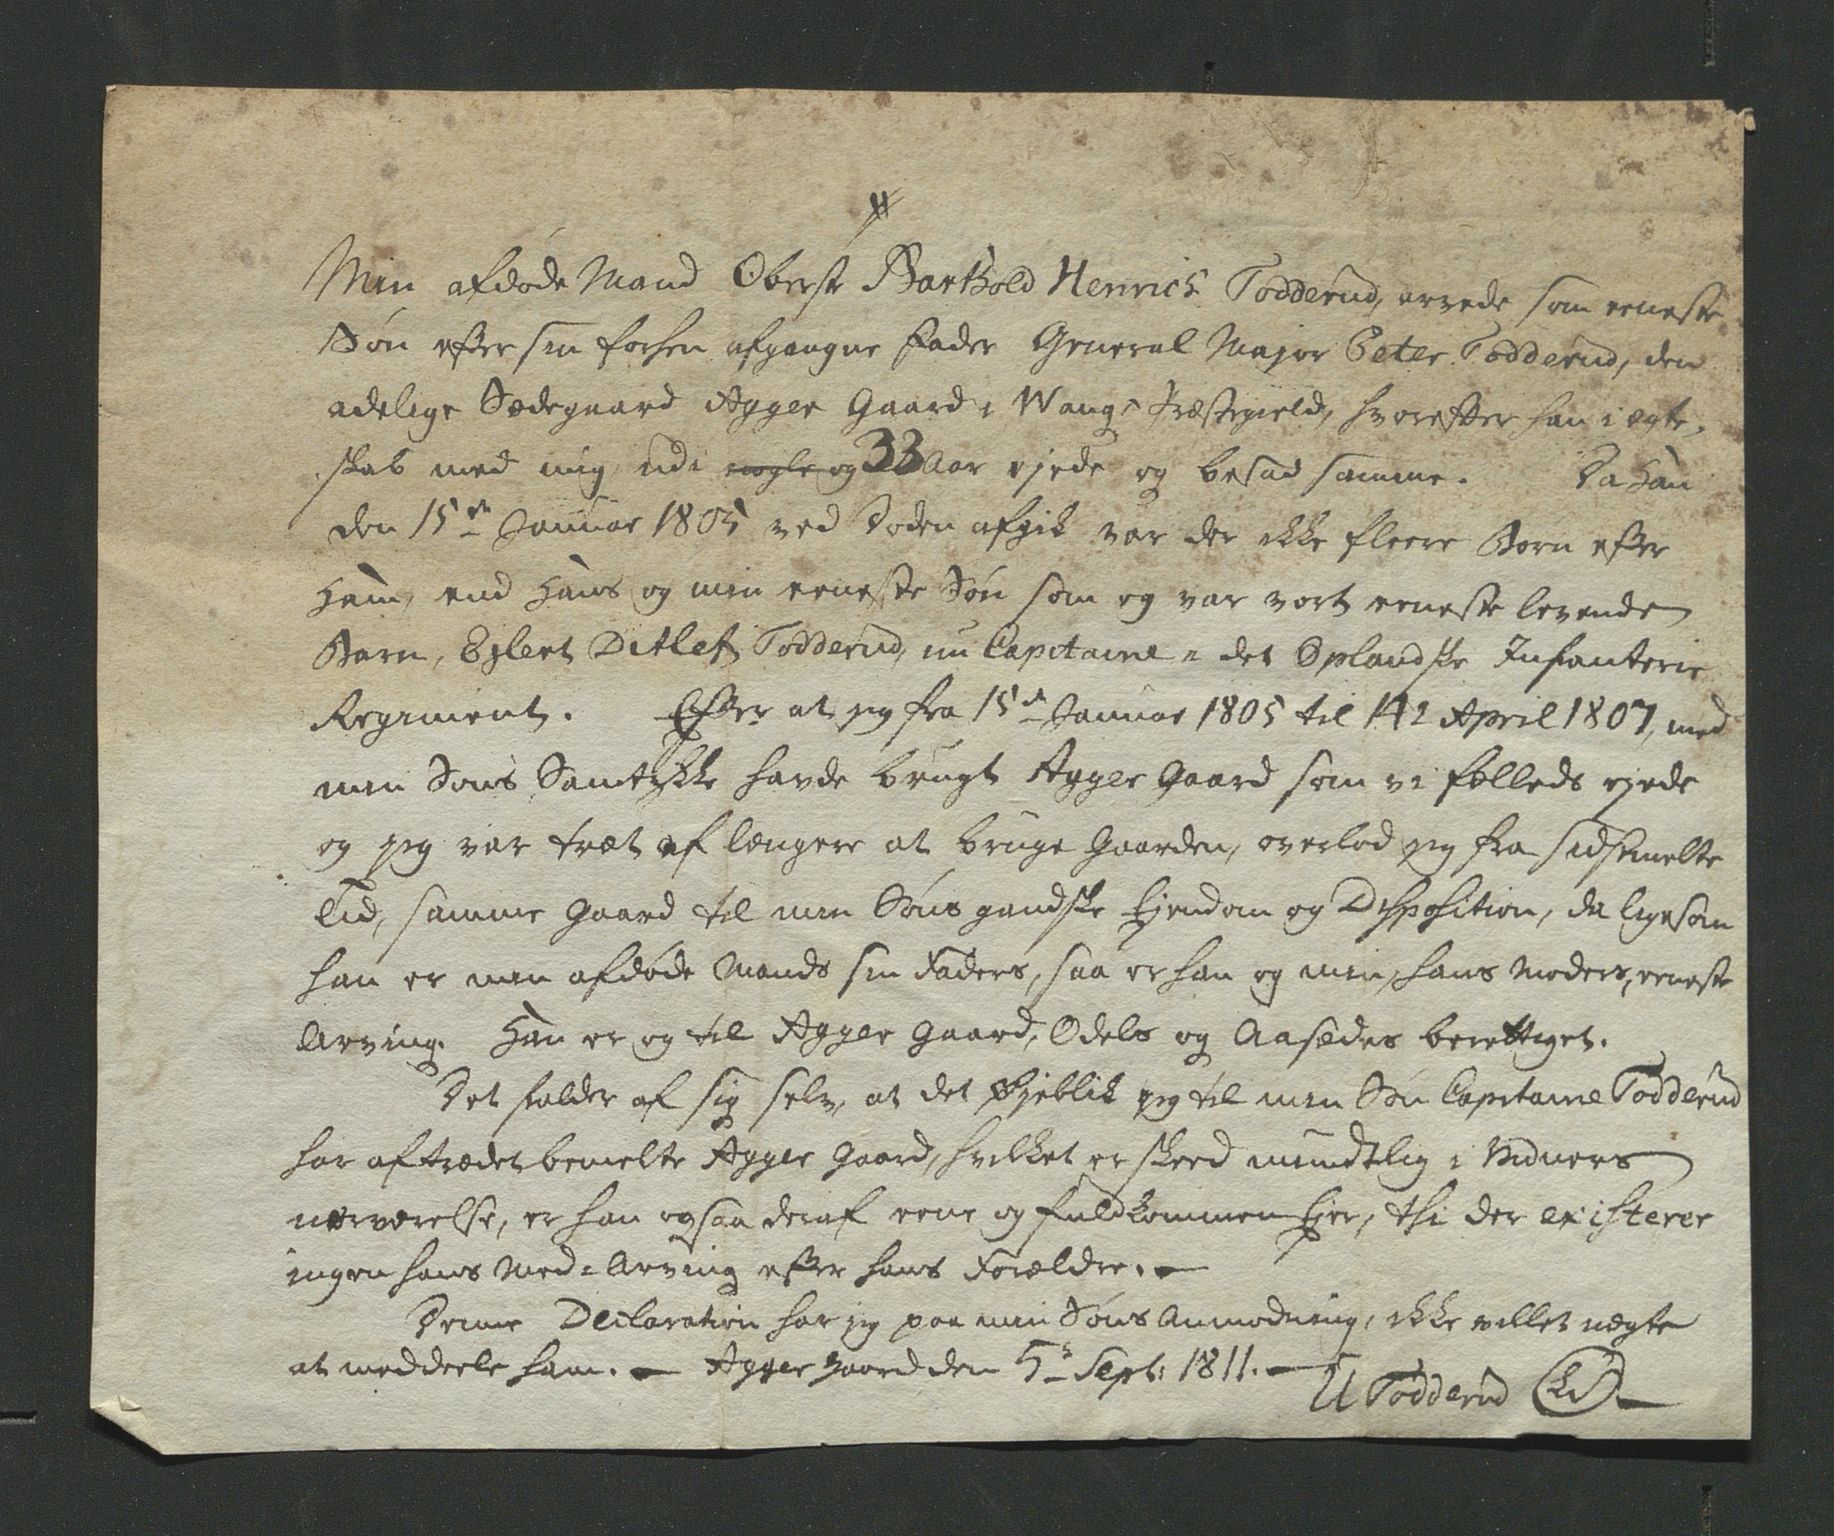 Min afdøde Mand Oberst Barthold Henrich Todderud, arvede som eeneste
Søn efter sin forhen afgangne Fader General Major Peter Todderud, den
adelige Sædegaard Agger Gaard i Wangs Præstegield, hvorefter han i ægte-
skab med mig udi nogle og 33 Aar ejede og besad samme. Da Han
den 15de Januar 1805 ved Døden afgik var der ikke fleere Børn efter
Ham, end Hans og min eeneste Søn som og var vort eeneste levende
Barn, Eylert Ditlef Todderud, nu Capitaine i det Oplandske Infanterie
Regiment. Efter at jeg fra 15de Januar 1805 til 14de April 1807, med
min Søns Samtykke havde brugt Agger Gaard som vi følleds ejede
og jeg var træt af længere at bruge Gaarden, overlod jeg fra sidstmelte
Tid, samme Gaard til min Søns gandske Ejendom og Disposition, da ligesom
han er min afdøde Mands sin Faders, saa er han og min, hans Moders, eeneste
Arving. Han er og til Agger Gaard, Odels og Aasædes berettiget.
Det falder af sig selv, at det Øjeblik jeg til min Søn Capitaine Todderud
har aftrædet bemelte Agger Gaard, hvilket er skeed mundtlig i Vidners
nærværelse, er han ogsaa deraf eene og fuldkommen Ejer, thi der existerer
ingen hans Med-Arving efter hans Forældre. —
Denne Declaration har jeg paa min Søns Anmodning, ikke villet nægte
at meddeele ham. — Agger Gaard den 5te Sept: 1811. —
U Todderud